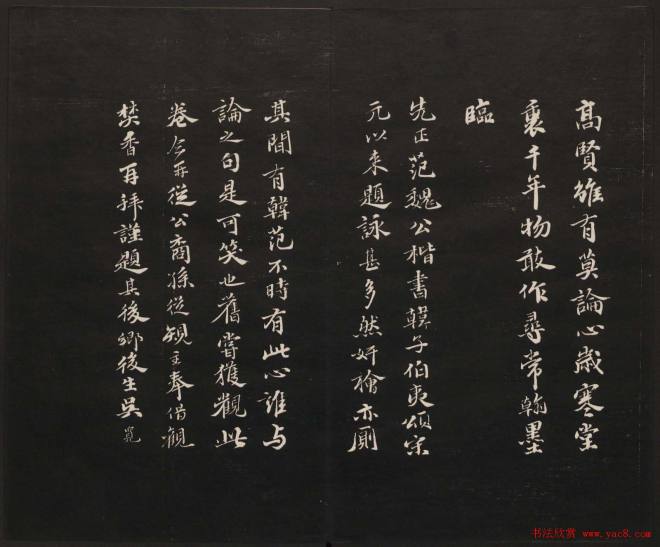 高賢雖有莫論心歲寒堂
裏千年物敢作尋常翰墨
臨
先正范魏公楷書韓子伯夷頌宋
元以來題詠甚多然奸檜亦廁
其間有韓范不時有此心誰与
論之句是可笑也舊嘗獲觀此
卷今再從公裔孫從規主奉借觀
焚香再拜謹題其後鄉後生吳寬
书法欣赏 www.yac8.com